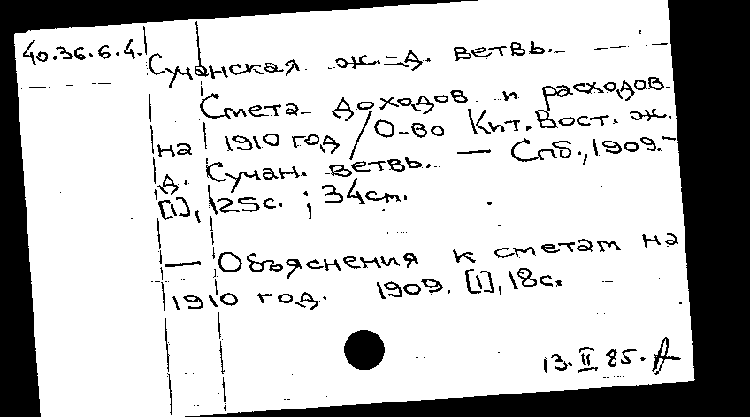 40.36.6.4.
Сучанская ж.-д. ветвь.
Смета доходов и расходов
на 1910 год / О-во Кит. Вост. ж.
д. Сучан. ветвь. — Спб., 1909. -
[1], 125с. ; 34см.
— Объяснения к сметам на
1910 год. 1909. [1], 18с.
13.II 85.